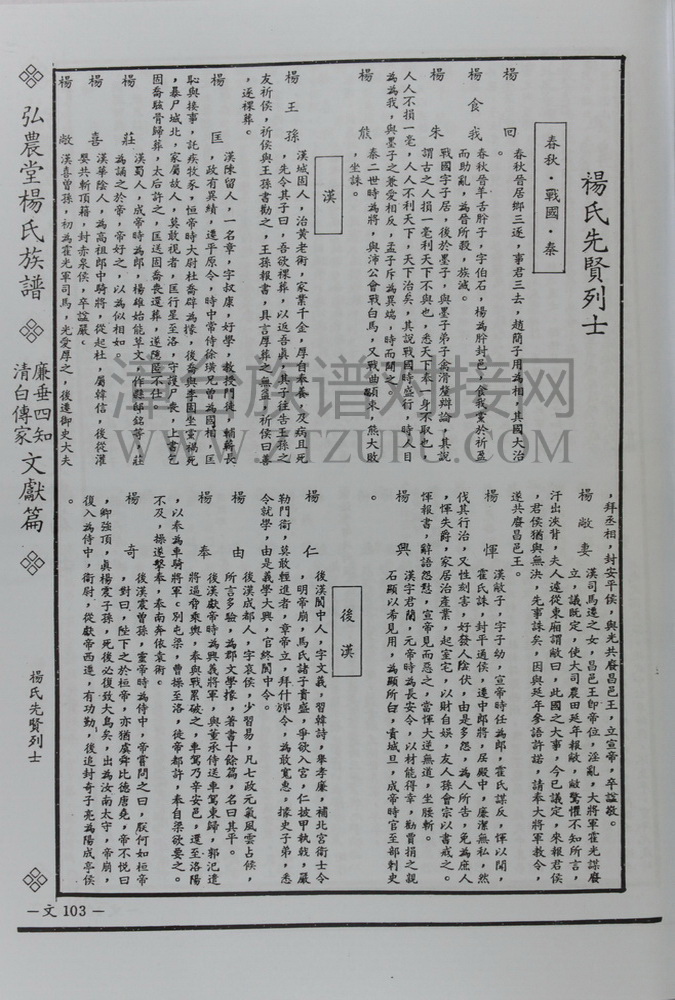 楊氏先賢列士
春秋・戰國・秦
楊回 春秋晉居鄉三逐，事君三去，趙簡子用為相，其國大治
。
楊食我 春秋晉羊舌肸子，字伯石，楊為肸封邑，食我黨於祁盈
而助亂，為晉所殺，族滅。
楊朱 戰國字子居，後於墨子，與墨子弟子禽滑釐辯論，其說
謂古之人損一毫利天下不與也，悉天下奉一身不取也，
人人不損一毫，人人不利天下，天下治矣，其說戰國時盛行，時人目
為為我，與墨子之兼愛相反，孟子斥為異端，時而闢之。
楊熊 秦二世時為將，與沛公會戰白馬，又戰曲遇東，熊大敗
，坐誅。
漢
楊王孫 漢城固人，治黃老術，家業千金，厚自奉養，及病且死
，先令其子曰，吾欲裸葬，以返吾真，其子往告王孫之
友祁侯，祁侯與王孫書勸之，王孫報書，具言厚葬之無益，祁侯曰善
，遂裸葬。
楊匡 漢陳留人，一名章，字叔康，好學，教授門徒，補蘄長
，政有異績，遷平原令，時中常侍徐璜兄曾為國相，匡
恥與接事，託疾牧豕，恒帝時太尉杜喬辟為掾，後喬與李固坐黨禍死
，暴尸城北，家屬故人，莫敢視者，匡行星至洛，守護尸喪，上書乞
固喬骸骨歸葬，太后許之，匡送固喬喪還葬，遂隱居不仕。
楊莊 漢蜀人，成帝時為郎，楊雄始能草文，作縣邸銘等，莊
為誦之於帝，帝好之，以為似相如。
楊喜 漢華陰人，為高祖郎中騎將，從起杜，屬韓信，後從灌
嬰共斬項藉，封赤泉侯，卒諡嚴。
楊敞 漢喜曾孫，初為霍光軍司馬，光愛厚之，後遷御史大夫
，拜丞相，封安平侯，與光共廢昌邑王，立宣帝，卒諡敬。
楊敞妻 漢司馬遷之女，昌邑王即帝位，淫亂，大將軍霍光謀廢
立，議既定，使大司農田延年報敞，敞驚懼不知所言，
汗出浹背，夫人遽從東廂謂敞曰，此國之大事，今已議定，來報君侯
，君侯猶與無決，先事誅矣，因與延年參語許諾，請奉大將軍教令，
遂共廢昌邑王。
楊惲 漢敞子，字子幼，宣帝時任為郎，霍氏謀反，惲以聞，
霍氏誅，封平通侯，遷中郎將，居殿中，廉潔無私，然
伐其行治，又性刻害，好發人陰伏，由是多怨，為人所告，免為庶人
，惲失爵，家居治產業，起室宅，以財自娛，友人孫會宗以書戒之。
惲報書，辭語怨懟，宣帝見而惡之，當惲大逆無道，坐腰斬。
楊興 漢字君蘭，元帝時為長安令，以材能得幸，勸賈捐之親
石顯以希見用，為顯所白，責城旦，成帝時官至部刺史
。
後漢
楊仁 後漢閬中人，字文義，習韓詩，舉孝廉，補北宮衛士令
，明帝崩，馬氏諸子貴盛，爭欲入宮，仁披甲執戟，嚴
勒門衛，莫敢輕進者，章帝立，拜什邡令，為敢寬惠。據史子弟，悉
令就學，由是義學大興，官終閬中令。
楊由 後漢成都人，字哀侯，少習易，凡七政元氣風雲占候，
所言多驗，為郡文學掾，著書十餘篇，名曰其平。
楊奉 後漢獻帝時為興義將軍，與董承侍送車駕東歸，郭汜追
將逼脅乘輿，奉與戰累破之，車駕乃幸安邑，還至洛陽
，以奉為車騎將軍。別屯梁，曹操至洛，徙帝都許，奉自梁欲要之。
不及，操遂擊奉，奉南奔依袁術。
楊奇 後漢震曾孫，靈帝時為侍中，帝嘗問之曰，朕何如桓帝
，對曰，陛下之於桓帝，亦猶虞舜比德唐堯，帝不悅曰
，卿強項，真楊震子孫，死後必復致大鳥矣，出為汝南太守，帝崩，
復入為侍中，衛尉，從獻帝西遷，有功勤，後追封奇子亮為陽成亭侯
。
弘農堂楊氏族譜
廉垂四知
清白傳家
文獻篇
楊氏先賢列士
－文 103－
津介族谱对接网
WWW.ZTZUPU.COM